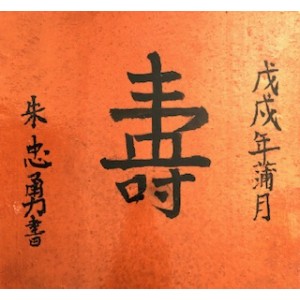 戊戌年蒲月
壽
朱忠勇書